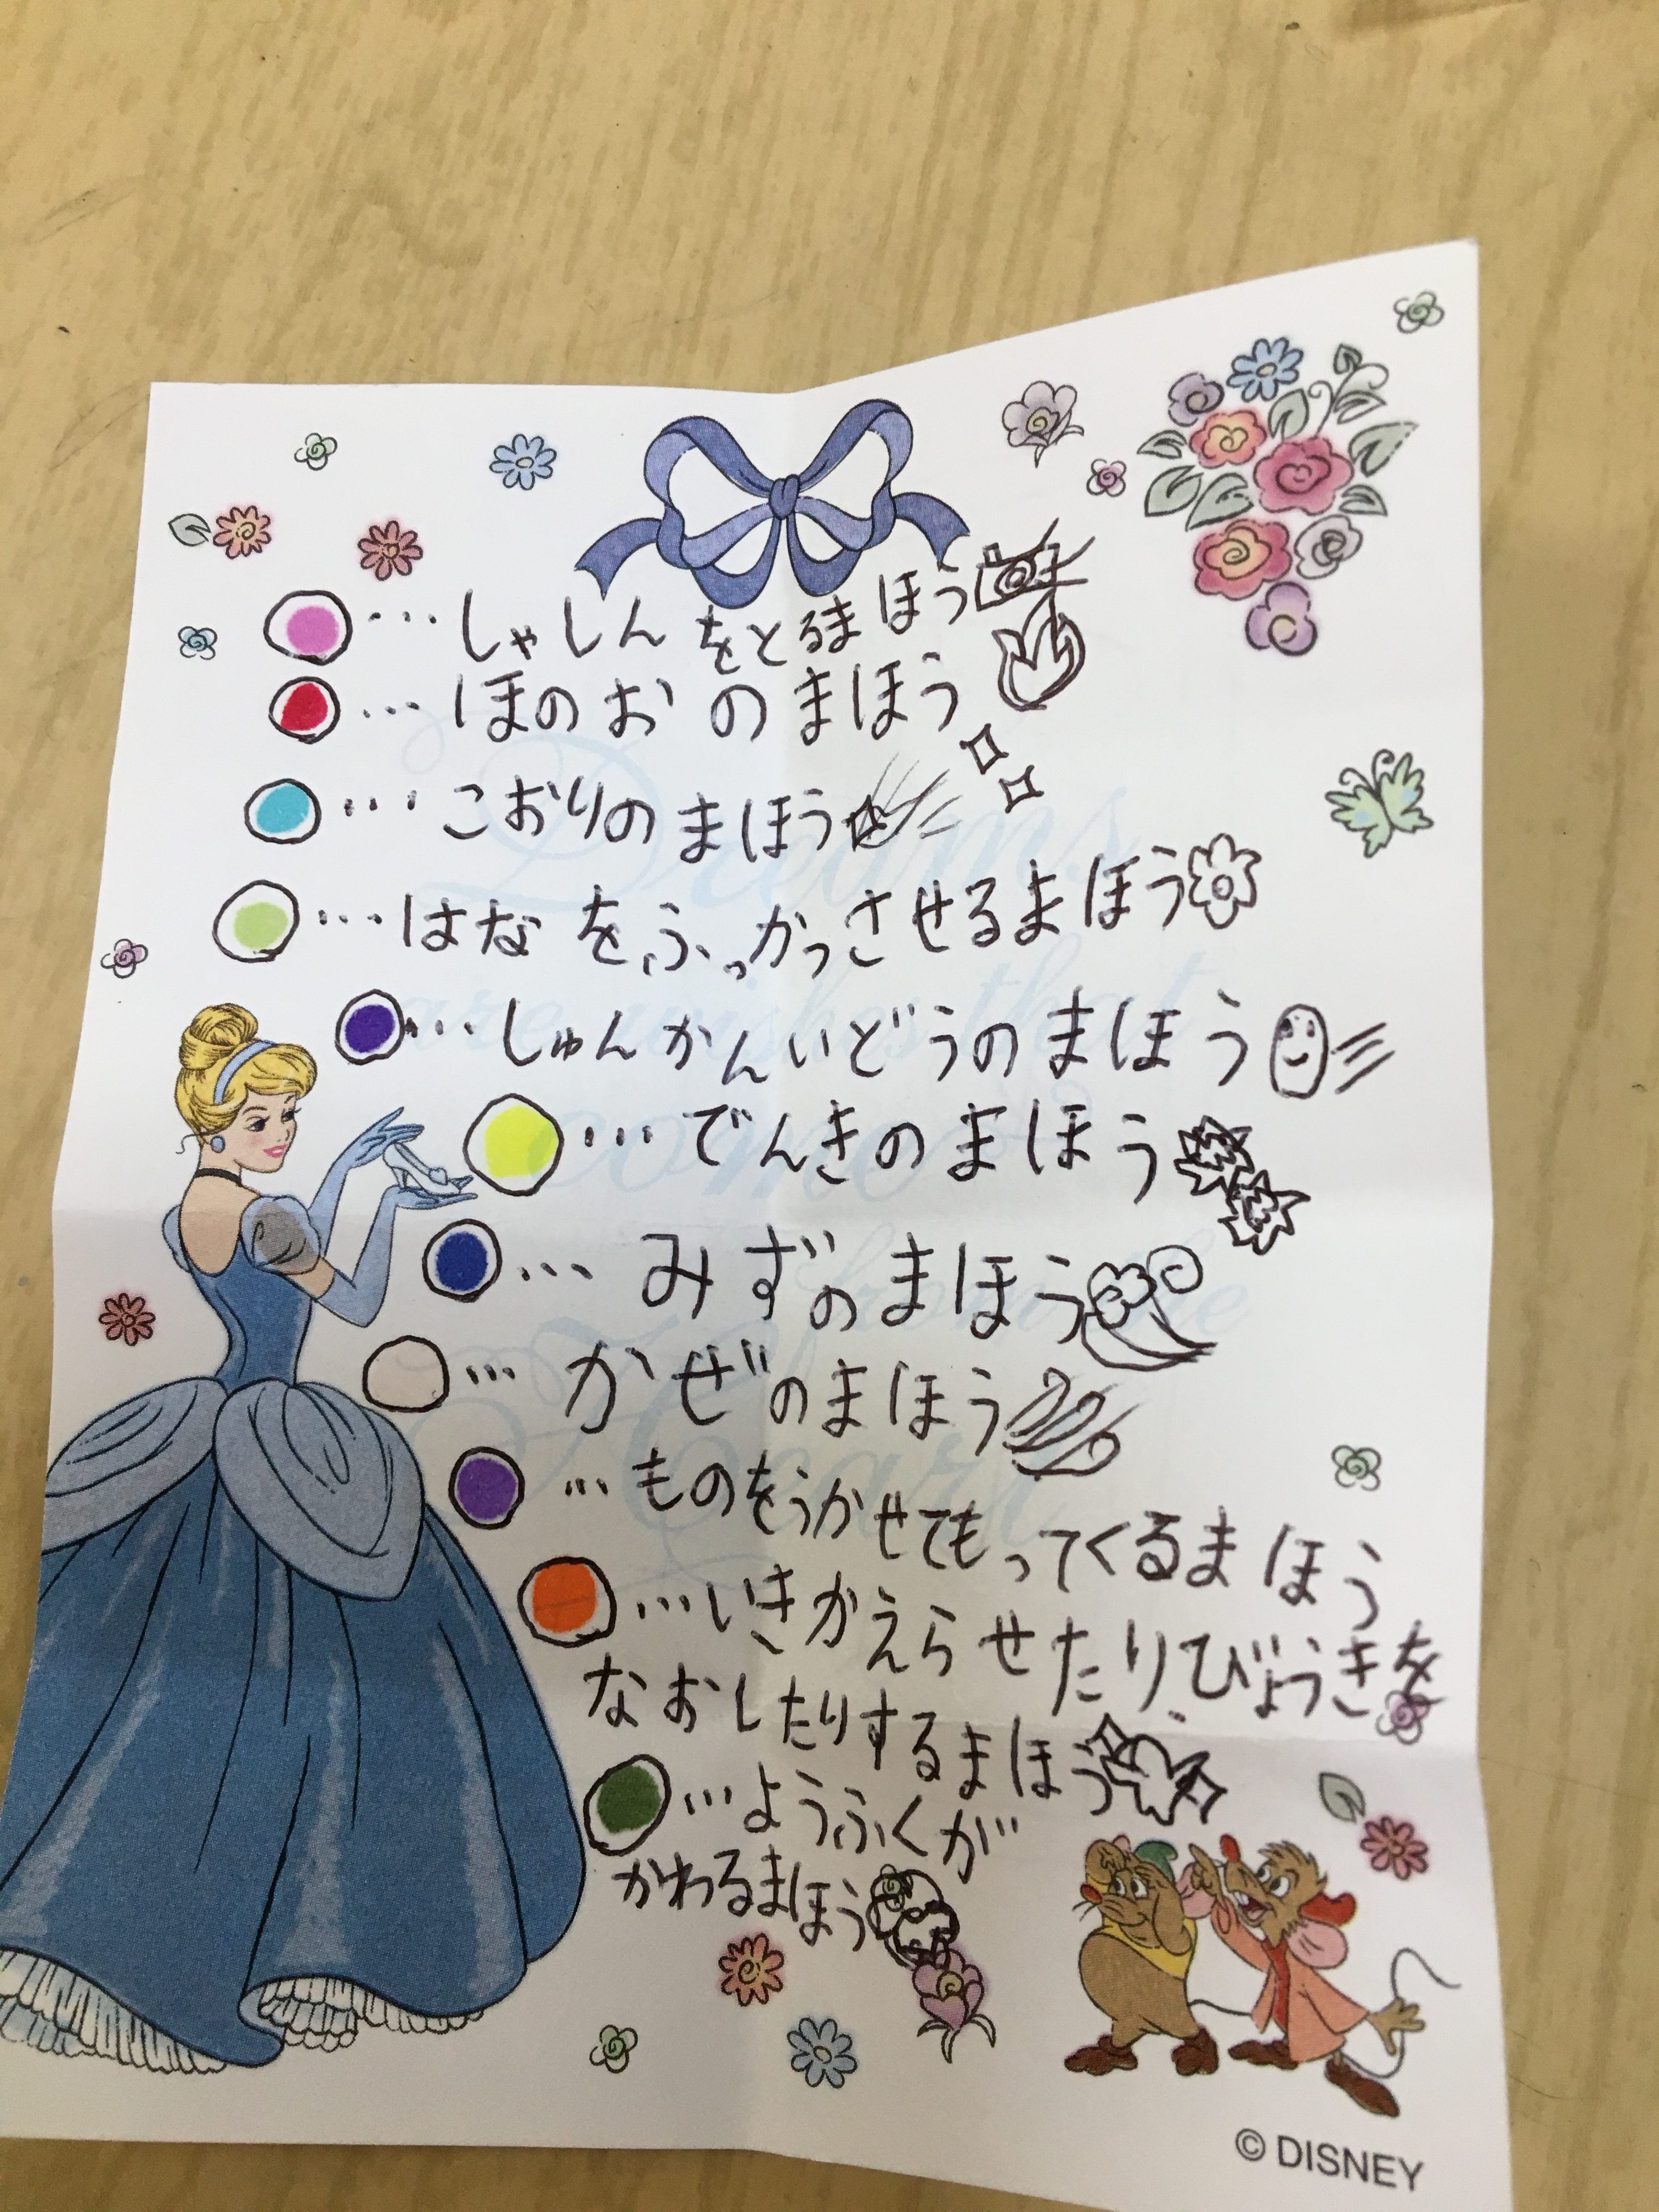 …しゃしんをとるまほう
…ほのおのまほう
…こおりのまほう
…はなをふっかつさせるまほう
…しゅんかんいどうのまほう
…でんきのまほう
…みずのまほう
…かぜのまほう
…ものをうかせてもってくるまほう
…いきかえらせたり、びょうきを
なおしたりするまほう
…ようふくが
かわるまほう
© DISNEY